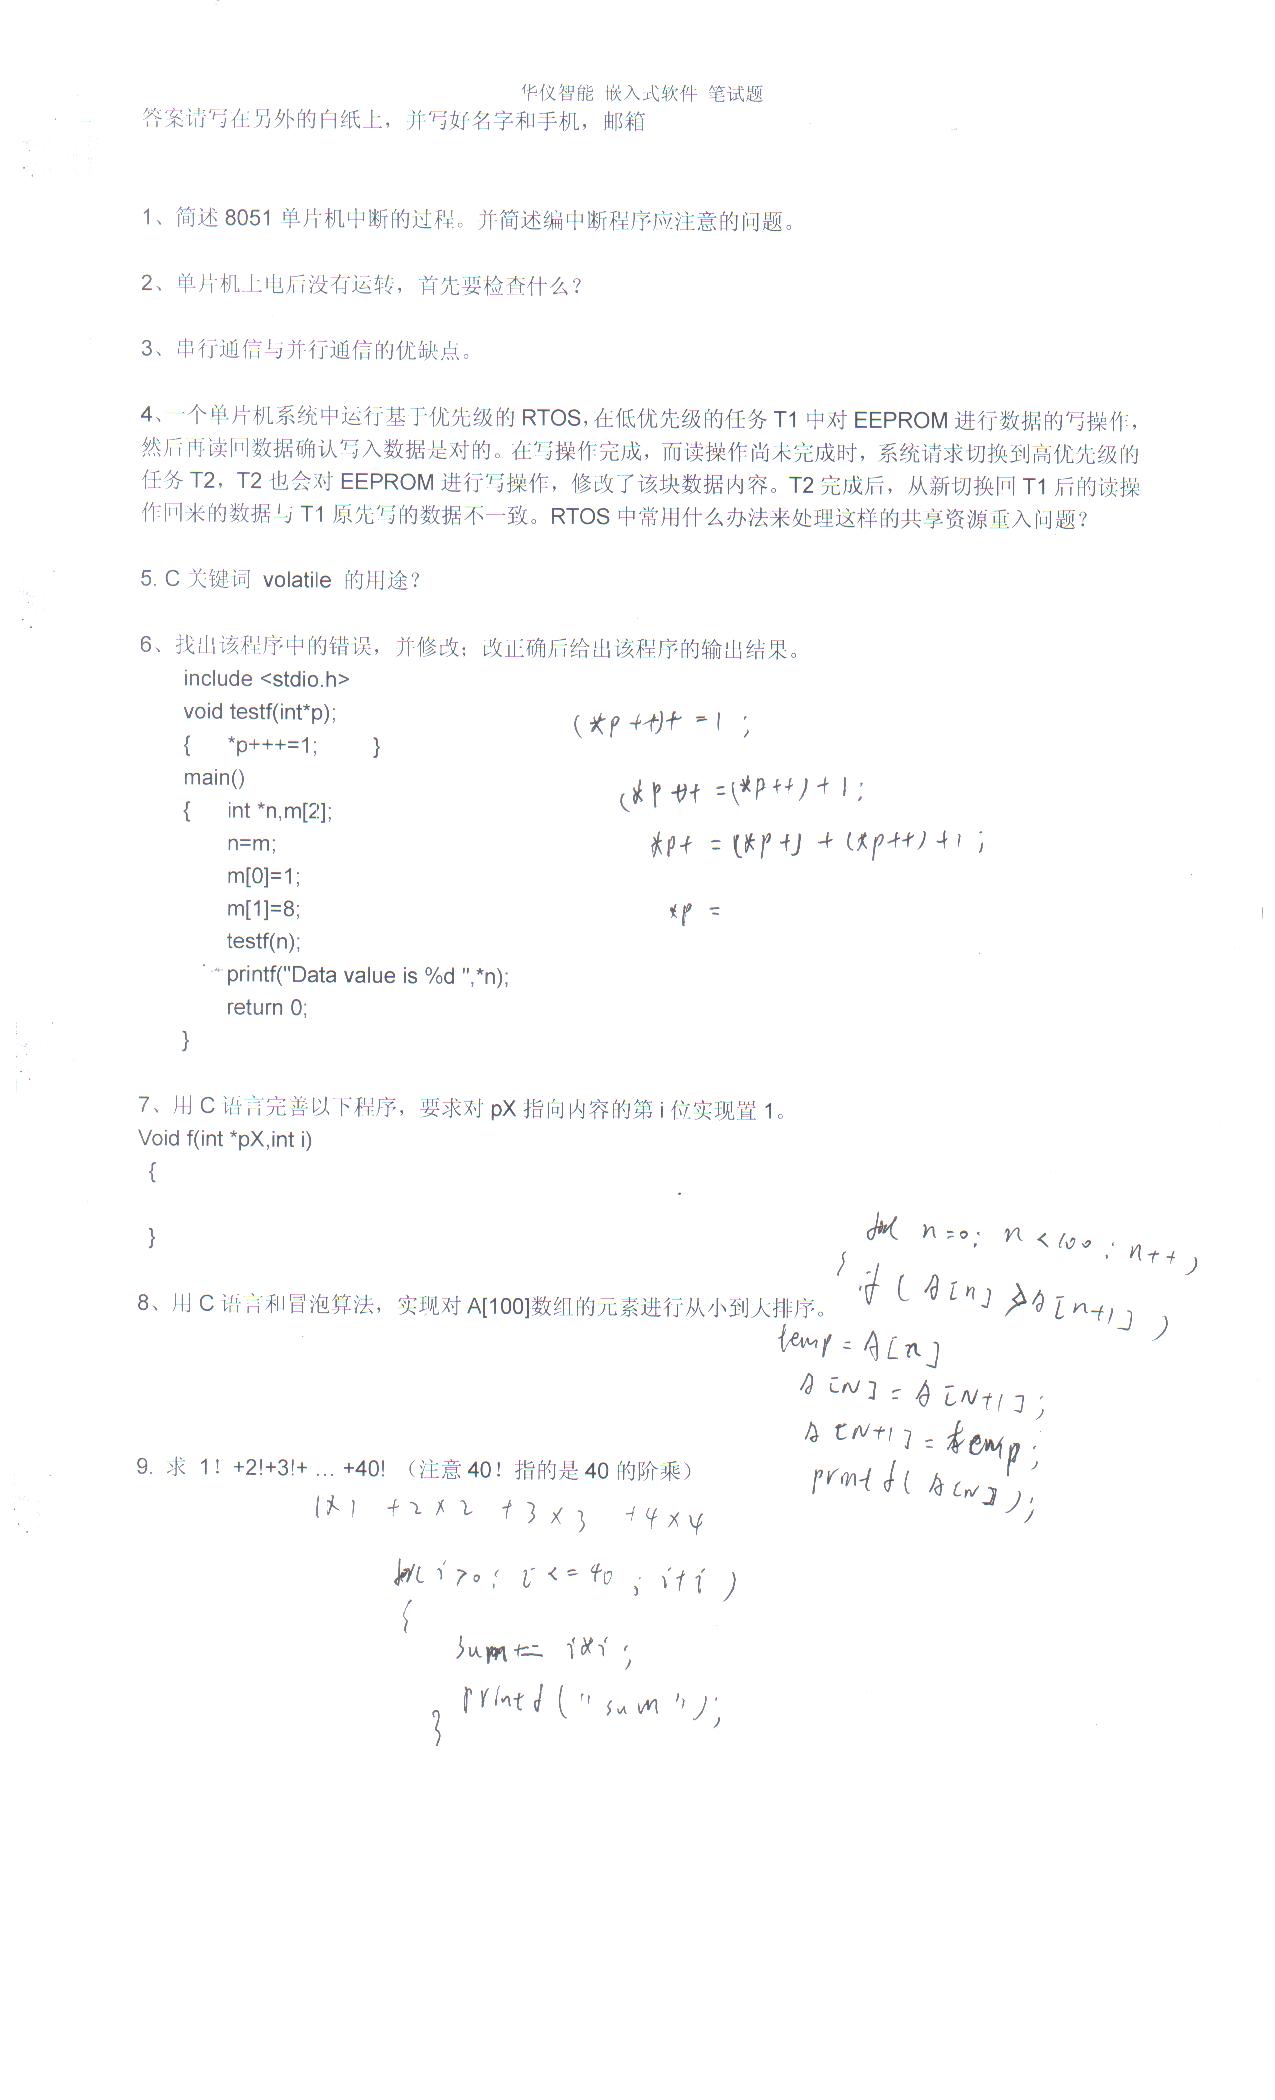 华仪智能 嵌入式软件 笔试题
答案请写在另外的白纸上，并写好名字和手机，邮箱
1、简述 8051 单片机中断的过程。并简述编中断程序应注意的问题。
2、单片机上电后没有运转，首先要检查什么？
3、串行通信与并行通信的优缺点。
4、一个单片机系统中运行基于优先级的 RTOS，在低优先级的任务 T1 中对 EEPROM 进行数据的写操作，
然后再读回数据确认写入数据是对的。在写操作完成，而读操作尚未完成时，系统请求切换到高优先级的
任务 T2，T2 也会对 EEPROM 进行写操作，修改了该块数据内容。T2 完成后，从新切换回 T1 后的读操
作回来的数据与 T1 原先写的数据不一致。RTOS 中常用什么办法来处理这样的共享资源重入问题？
5. C 关键词 volatile 的用途？
6、找出该程序中的错误，并修改；改正确后给出该程序的输出结果。
include <stdio.h>
void testf(int*p);
{ *p+++=1; }
main()
{ int *n,m[2];
n=m;
m[0]=1;
m[1]=8;
testf(n);
printf("Data value is %d ",*n);
return 0;
}
(*p++)+=1;
(*p++)+=(*p++)+1;
*p+ = (*p+) + (*p++)+1;
*p =
7、用 C 语言完善以下程序，要求对 pX 指向内容的第 i 位实现置 1。
Void f(int *pX,int i)
{
}
8、用 C 语言和冒泡算法，实现对 A[100]数组的元素进行从小到大排序。
for n=0; n<100; n++)
{ if (A[n]>A[n+1])
temp=A[n]
A[N]=A[N+1];
A[N+1]=temp;
printf(A[N]);
9. 求 1！+2!+3!+ ... +40! （注意 40！指的是 40 的阶乘）
1×1 +2×2 +3×3 +4×4
for i>0; i<=40; i+i)
{
sum+= i*i;
printf("sum");
}